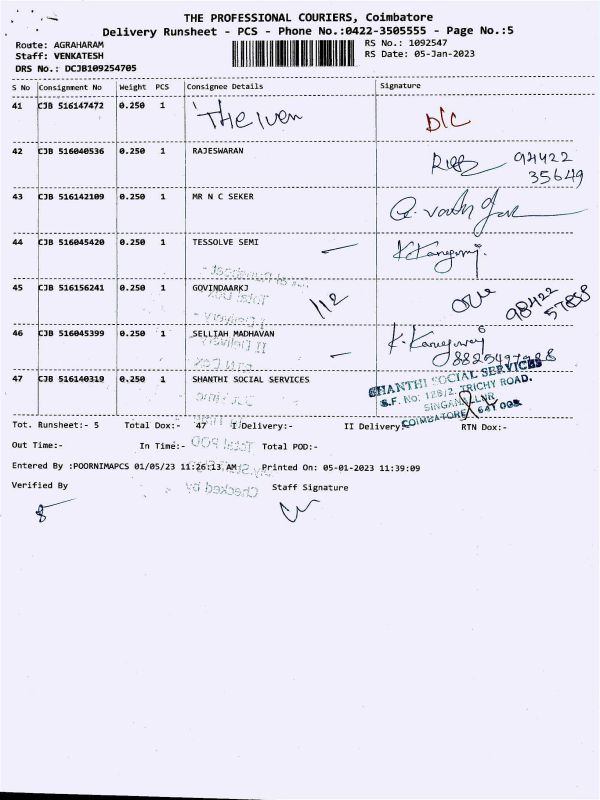 THE PROFESSIONAL COURIERS, Coimbatore
Delivery Runsheet - PCS - Phone No.:0422-3505555 - Page No.:5
Route: AGRAHARAM
RS No.: 1092547
Staff: VENKATESH
RS Date: 05-Jan-2023
DRS No.: DCJB109254705
S No Consignment No Weight PCS Consignee Details Signature
41 CJB 516147472 0.250 1 D/C
42 CJB 516040536 0.250 1 RAJESWARAN 94422
35649
43 CJB 516142109 0.250 1 MR N C SEKER
44 CJB 516045420 0.250 1 TESSOLVE SEMI
45 CJB 516156241 0.250 1 GOVINDAARKJ 112 98422
57858
46 CJB 516045399 0.250 1 SELLIAH MADHAVAN
47 CJB 516140319 0.250 1 SHANTHI SOCIAL SERVICES
SHANTHI SOCIAL SERVICES
S.F. No: 128/2, TRICHY ROAD.
SINGANALLUR
COIMBATORE - 641 005
Tot. Runsheet:- 5 Total Dox:- 47 I Delivery:- II Delivery: RTN Dox:-
Out Time:- In Time:- Total POD:-
Entered By :POORNIMAPCS 01/05/23 11:26:13 AM Printed On: 05-01-2023 11:39:09
Verified By Staff Signature